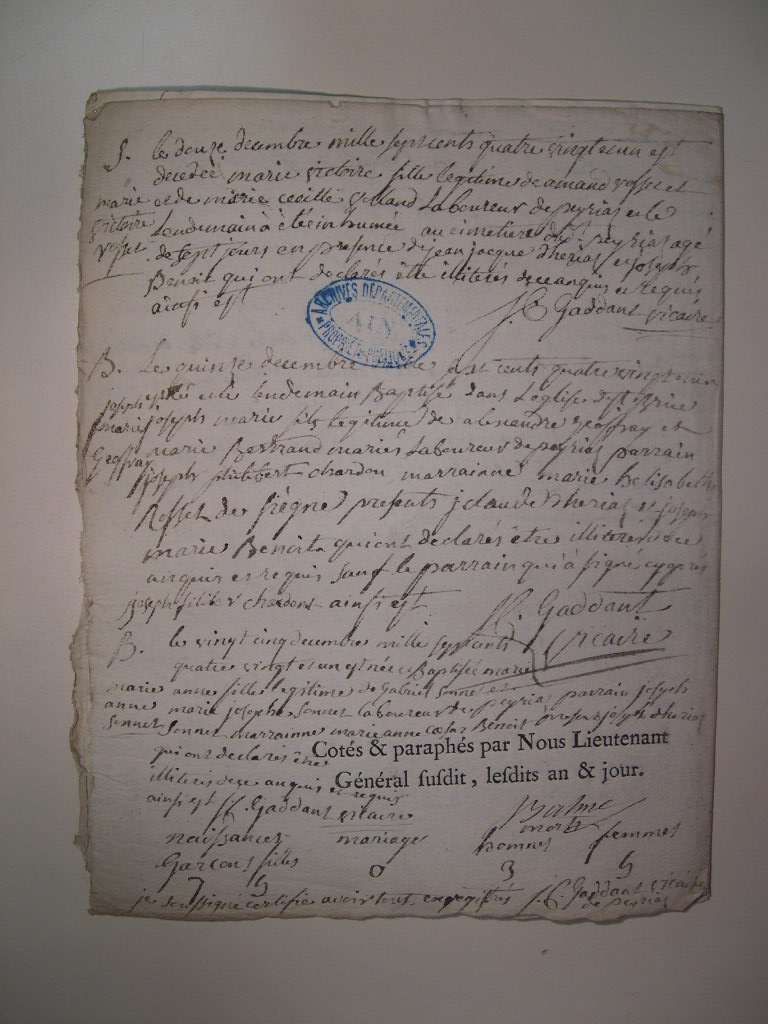 S. le douze decembre mille septcents quatre vingt et un est
decedée marie victoire fille legitime de amand vosset et
marie et de marie cecille laboureur de peyriat et le
victoire lendemain à été inhumée au cimetiere de peyriat agé
vosset de sept jours en presence de jean jacque dherias et joseph
Benoit qui ont declarés être illiterés de ce enquis et requis
ainsi est
J C Gaddant vicaire
ARCHIVES DÉPARTEMENTALES
AIN
PROPRIÉTÉ PUBLIQUE
B. Le quinze decembre sept cents quatre vingt et un
joseph est né et le lendemain Baptisé dans l'eglise
marie joseph marie fils legitime de alexandre geoffray et
Geoffray marie Bertrand mariés laboureur de peyriat parrain
joseph philibert chardon marrainne marie
Rosset de presents j claude dherias et joseph
marie Benoit qui ont declarés être illiterés de ce
enquis et requis sauf le parrain qui à signé
joseph filiber chardont ainsi est
J C Gaddant
vicaire
B. le vingt cinq decembre mille septcents
quatre vingt et un est née et Baptisée marie
marie anne fille legitime de Gabriel sonnet et
anne marie josephe sonnet laboureur de peyriat parrain joseph
sonnet sonnet marrainne marie anne Benoit presents joseph dherias
qui ont declarés être
Cotés & paraphés par Nous Lieutenant
illiterés de ce enquis et requis
Général susdit, lesdits an & jour.
ainsi est J C Gaddant vicaire
Balme
naissances mariage morts
Garcons filles hommes femmes
7 5 0 3 5
je soussigné certifie avoir tout enregistrés J C Gaddant vicaire
de peyriat